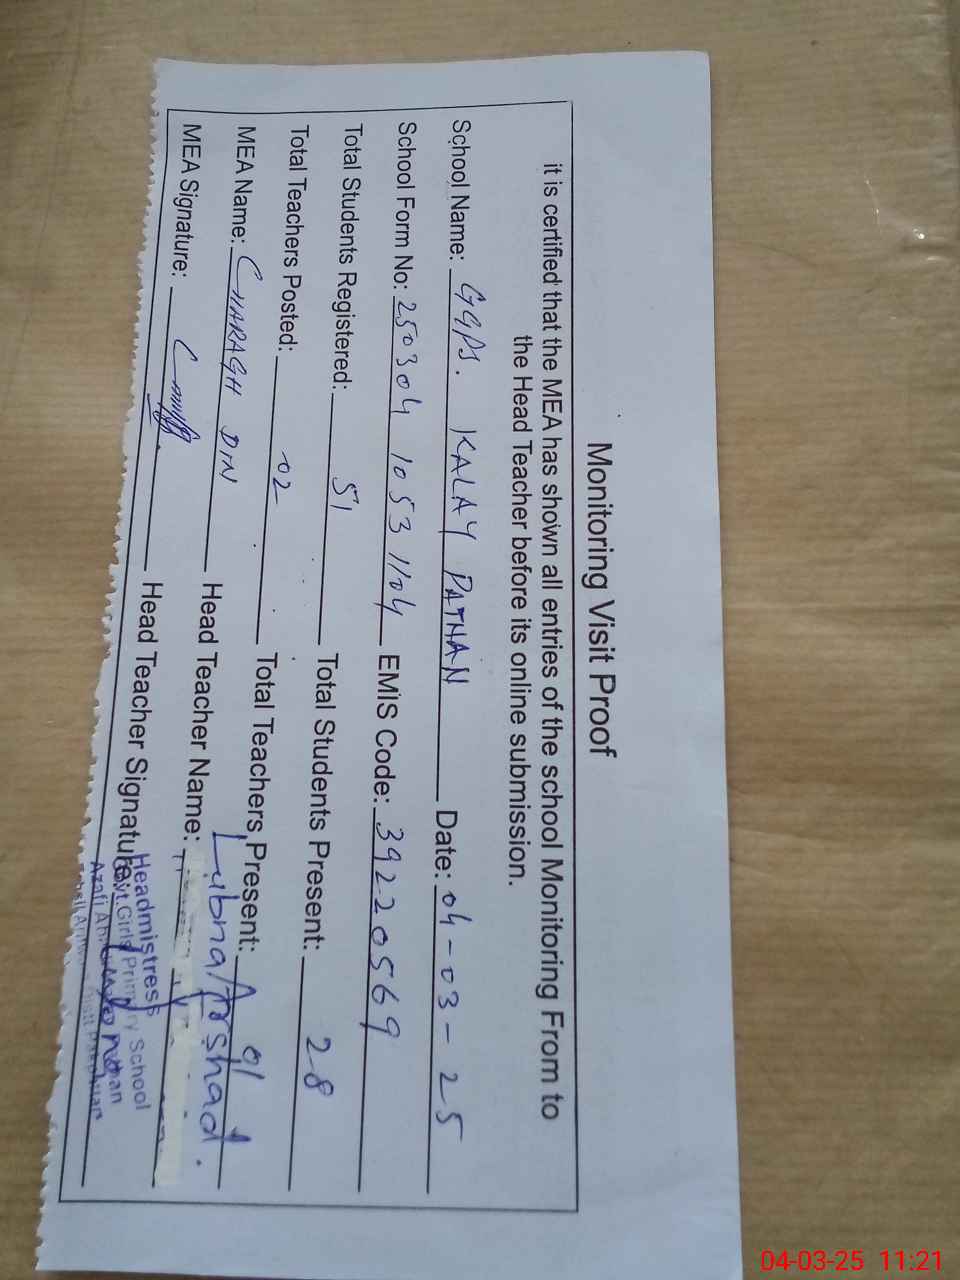 Monitoring Visit Proof
it is certified that the MEA has shown all entries of the school Monitoring From to
the Head Teacher before its online submission.
School Name: GGPS. KALAY PATHAN Date: 04-03-25
School Form No: 250304 1053 1104 EMIS Code: 39220569
Total Students Registered: 51 Total Students Present: 28
Total Teachers Posted: 02 Total Teachers Present: 01
MEA Name: CHARAGH DIN Head Teacher Name: Lubna Arshad.
MEA Signature: Head Teacher Signature:
Headmistress
Govt. Girls Primary School
04-03-25 11:21